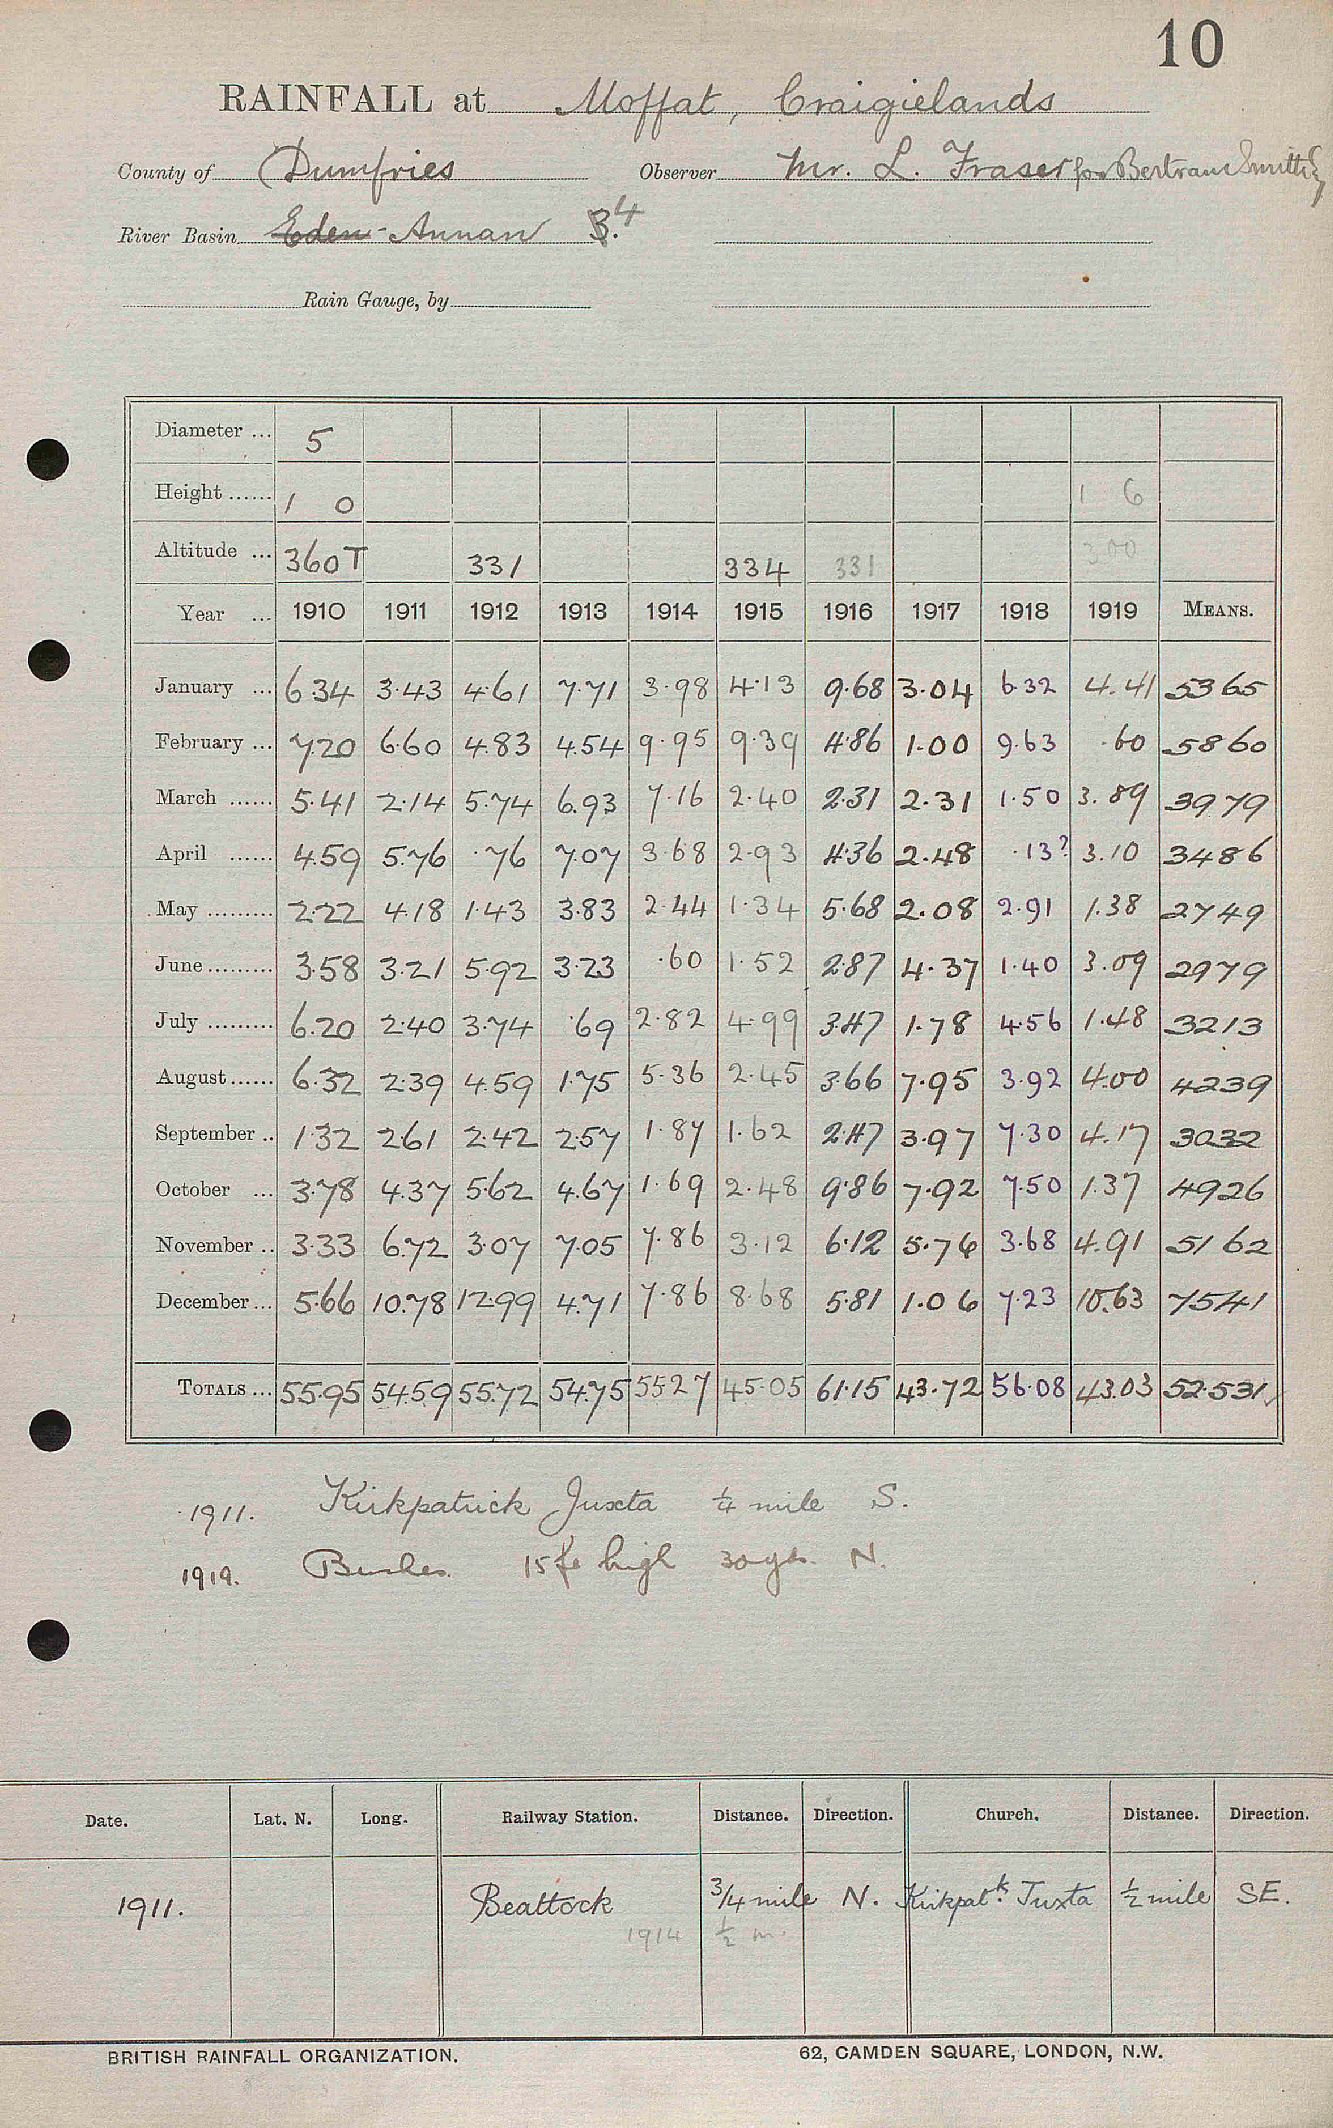 10
RAINFALL at Moffat, Craigielands
County of Dumfries Observer Mr. L. Fraser for Bertram Smith
River Basin Eden Annan 4
Rain Gauge, by
Diameter ... 5
Height ...... 1 0 1 6
Altitude ... 360T 331 334 331 300
Year ... 1910 1911 1912 1913 1914 1915 1916 1917 1918 1919 MEANS.
January ... 6 34 3.43 4.61 7.71 3.98 4.13 9.68 3.04 6.32 4.41 5365
February ... 7.20 6.60 4.83 4.54 9.95 9.39 4.86 1.00 9.63 .60 5860
March ...... 5.41 2.14 5.74 6.93 7.16 2.40 2.31 2.31 1.50 3.89 3979
April ...... 4.59 5.76 .76 7.07 3.68 2.93 4.36 2.48 .13? 3.10 3486
May ......... 2.22 4.18 1.43 3.83 2.44 1.34 5.68 2.08 2.91 1.38 2749
June ......... 3.58 3.21 5.92 3.23 .60 1.52 2.87 4.37 1.40 3.09 2979
July ......... 6.20 2.40 3.74 .69 2.82 4.99 3.47 1.78 4.56 1.48 3213
August ...... 6.32 2.39 4.59 1.75 5.36 2.45 3.66 7.95 3.92 4.00 4239
September .. 1.32 2.61 2.42 2.57 1.87 1.62 2.47 3.97 7.30 4.17 3032
October ... 3.78 4.37 5.62 4.67 1.69 2.48 9.86 7.92 7.50 1.37 4926
November .. 3.33 6.72 3.07 7.05 7.86 3.12 6.12 5.76 3.68 4.91 5162
December ... 5.66 10.78 12.99 4.71 7.86 8.68 5.81 1.06 7.23 10.63 7541
TOTALS ... 55.95 54.59 55.72 54.75 55 27 45.05 61.15 43.72 56.08 43.03 52.531
1911. Kirkpatrick Juxta ¼ mile S.
1919. Bushes 15 ft high 30 yds. N.
Date. Lat. N. Long. Railway Station. Distance. Direction. Church. Distance. Direction.
1911. Beattock 3/4 mile N. Kirkpatk. Juxta ½ mile SE.
1914 ½ m.
BRITISH RAINFALL ORGANIZATION. 62, CAMDEN SQUARE, LONDON, N.W.